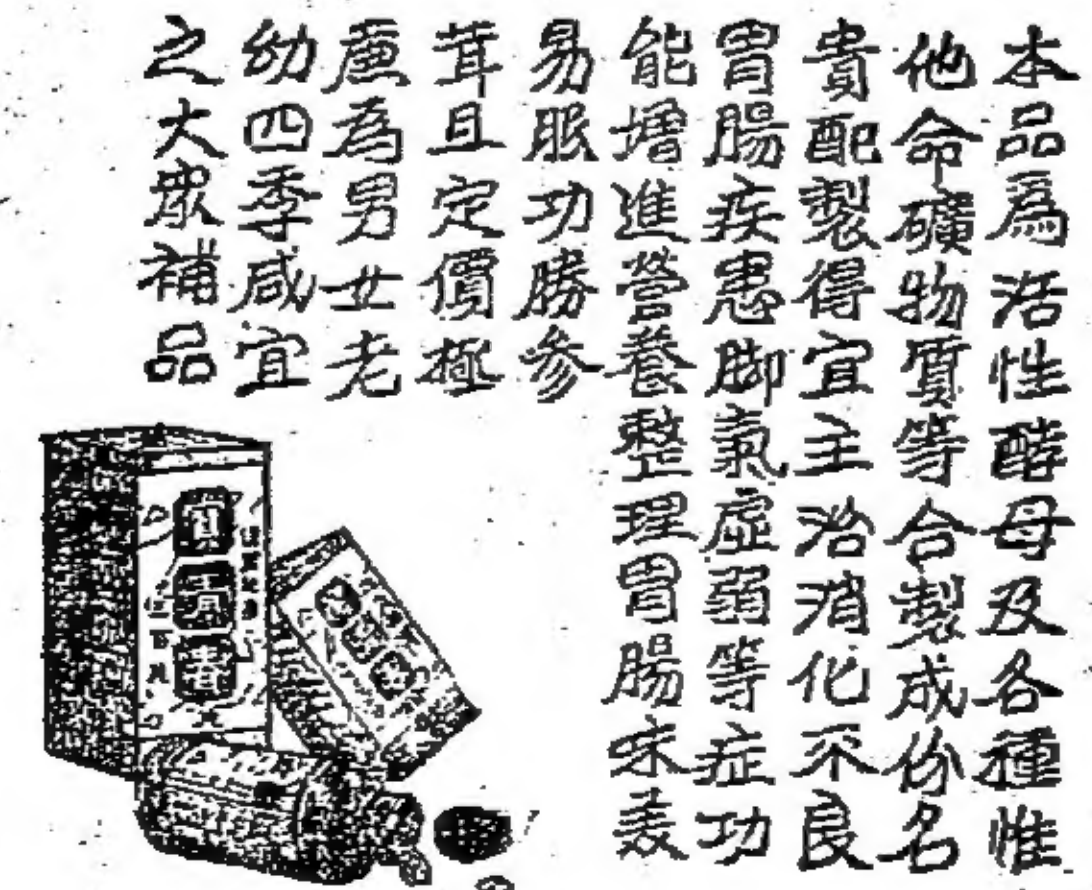 本品爲活性酵母及各種惟
他命礦物質等合製成份名
貴配製得宜主治消化不良
胃腸疾患脚氣虛弱等症功
能增進營養整理胃腸味美
易服功勝參
茸且定價極
廉為男女老
幼四季咸宜
之大衆補品
寶青春